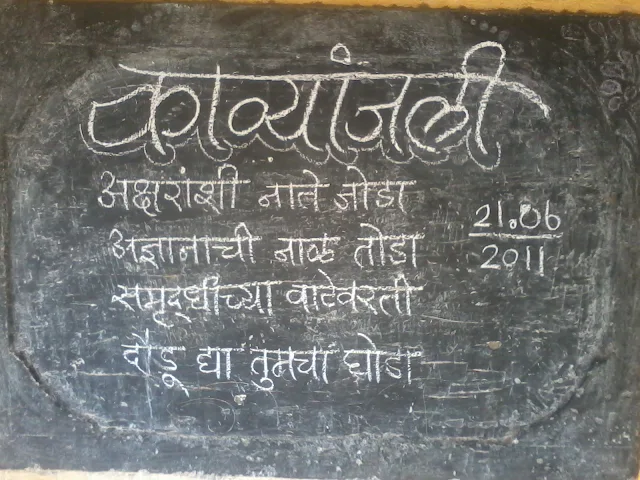 काव्यांजली
अक्षरांशी नाते जोडा
21.06
अज्ञानाची नाळ तोडा
2011
समृद्धीच्या वाटेवरती
दौडू द्या तुमचा घोडा